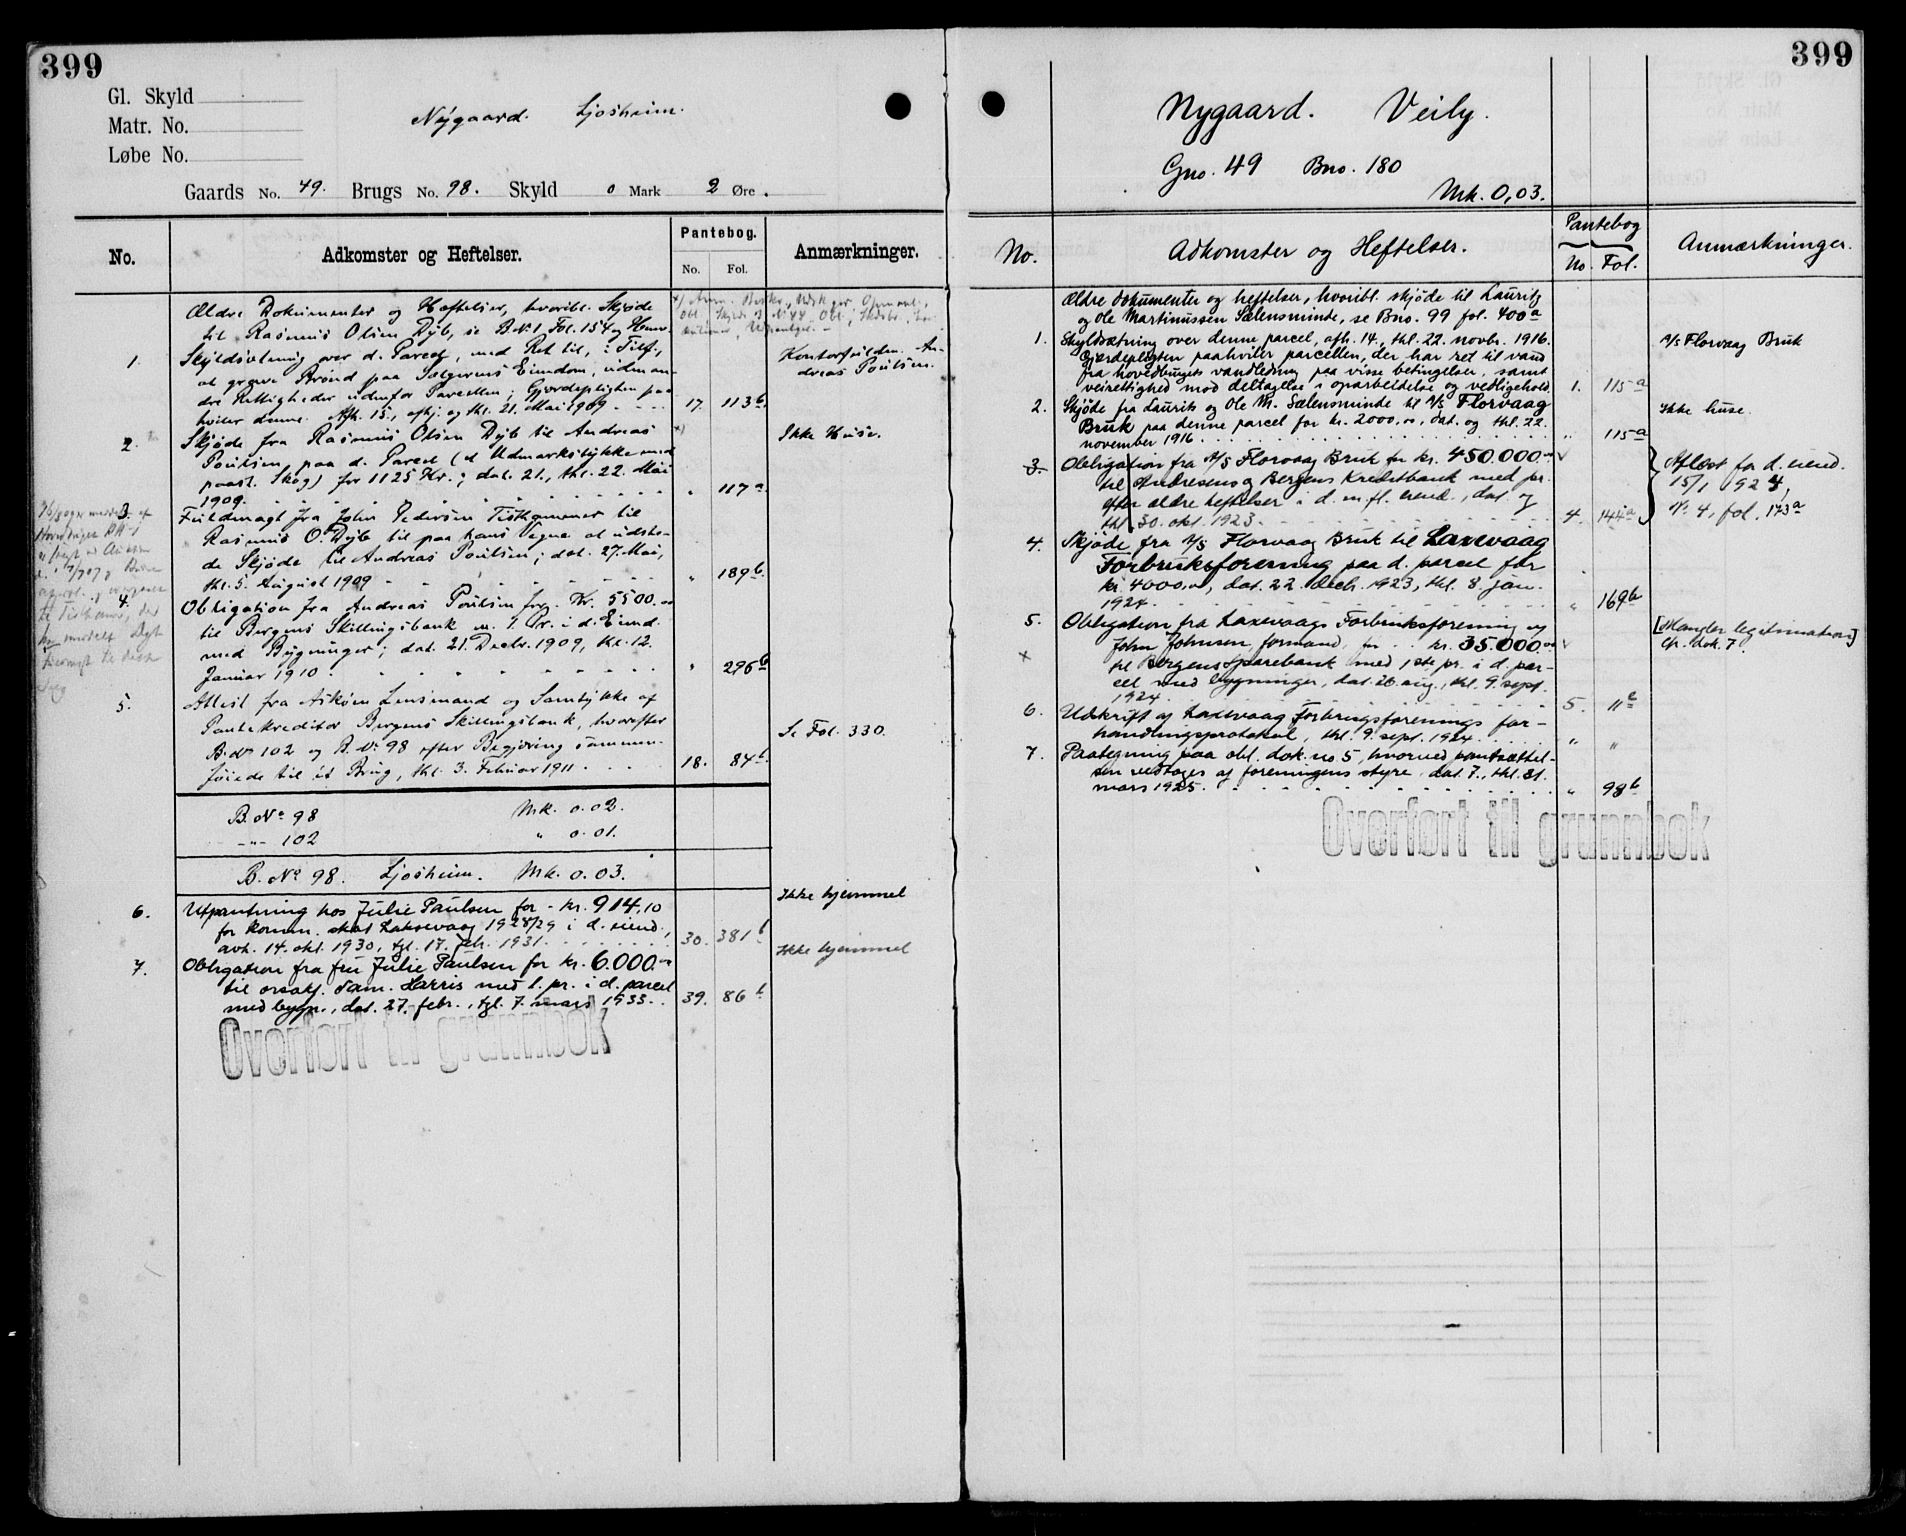 399
Gl. Skyld
Matr. No.
Løbe No.
Nygaard. Ljosheim.
Gaards No. 49. Brugs No. 98. Skyld 0 Mark 2 Øre.
No.
Adkomster og Heftelser.
Pantebog.
No. Fol.
Anmærkninger.
Ældre Dokumenter og Heftelser, hvoribl. Skjøde
til Rasmus Olsen Dyb, se B.No 1, Fol. 154
1. Skyldsætning over d. Parcel, med Ret til, i Tilf.,
at grave Brønd paa Sælgerens Eiendom, uden an-
dre Rettigheder udenfor Parcellen; Gjerdepligten paa-
hviler denne. Afh. 15., afhj. og thl. 21. Mai 1909 17. 113b
Kontorfuldm. An-
dreas Poulsen.
2. Skjøde fra Rasmus Olsen Dyb til Andreas
Poulsen paa d. Parcel (et Udmarksstykke med
paast. Skog) for 1125 Kr.; dat. 21., thl. 22. Mai
1909. " 117a
Ikke Huse.
3. Fuldmagt fra John Pedersen Tisthammer til
Rasmus O. Dyb til paa hans Vegne at udste-
de Skjøde til Andreas Poulsen; dat. 27. Mai,
thl. 5. August 1909 " 189b
4. Obligation fra Andreas Poulsen for Kr. 5500.00
til Bergens Skillingsbank m. 1. Pr. i d. Eiend.
med Bygninger; dat. 21. Decbr. 1909, thl. 12.
Januar 1910. " 296b
5. Attest fra Askøen Lensmand og Samtykke af
Pantekreditor Bergens Skillingsbank, hvorefter
B.No 102 og B.No 98 efter Begjæring sammen-
føiede til ét Brug, thl. 3. Februar 1911 18. 84b
Se Fol. 330.
B.No 98 Mk. 0.02.
-"- 102 " 0.01.
B.No 98. Ljosheim. Mk. 0.03.
6. Utpantning hos Julie Paulsen for - kr. 914,10
for komm. skat Laksevaag 1928/29 i d. eiend.,
avh. 14. okt. 1930, tgl. 17. feb. 1931. 30. 381b
Ikke hjemmel
7. Obligation fra fru Julie Paulsen for kr. 6.000.00
til orsakf. Sam. Harris med 1. pr. i d. parcel
med bygn., dat. 27. febr., tgl. 7. mars 1935. 39. 86b
Ikke hjemmel
Overført til grunnbok
399
Nygaard. Veily.
Gno. 49 Bno. 180
Mk. 0,03.
No.
Adkomster og Heftelser.
Pantebog
No. Fol.
Anmærkninger.
Ældre dokumenter og heftelser, hvoribl. skjøde til Lauritz
og Ole Martinussen Sælensminde, se Bno. 99 fol. 400a
1. Skyldsætning over denne parcel, afh. 14., thl. 22. novbr. 1916.
Gjerdepligten paahviler parcellen, der har ret til vand
fra hovedbrugets vandledning paa visse betingelser, samt
veirettighed mod deltagelse i oparbeidelse og vedligehold. 1. 115a
A/S Florvaag Bruk
2. Skjøde fra Laurits og Ole M. Sælensminde til A/S Florvaag
Bruk paa denne parcel for kr. 2000.00, dat. og thl. 22.
november 1916 " 115a
Ikke huse.
3. Obligation fra A/S Florvaag Bruk for kr. 450.000.00
til Andresens og Bergens Kreditbank med pr.
efter ældre heftelser i d. m. fl. eiend., dat. og
thl. 30. okt. 1923. 4. 144a
Aflæst for d. eiend.
15/1 1924,
No. 4, fol. 173a
4. Skjøde fra A/S Florvaag Bruk til Laxevaag
Forbruksforening paa d. parcel for
kr. 4000,00, dat. 22. decb. 1923, thl. 8. jan.
1924. " 169b
5. Obligation fra Laxevaags Forbruksforening og
John Johnsen, formand, for kr. 35.000.00
til Bergens Sparebank med 1ste pr. i d. par-
cel med bygninger, dat. 26. aug., thl. 9. sept.
1924 5. 11b
[Mangler legitimation]
Cfr. dok. 7.
6. Udskrift af Laxevaag Forbrugsforenings for-
handlingsprotokol, thl. 9. sept. 1924. " "
7. Paategning paa obl. dok. no 5, hvorved pantsættel-
sen vedtages af foreningens styre, dat. 7., thl. 21.
mars 1925. " 98b
Overført til grunnbok